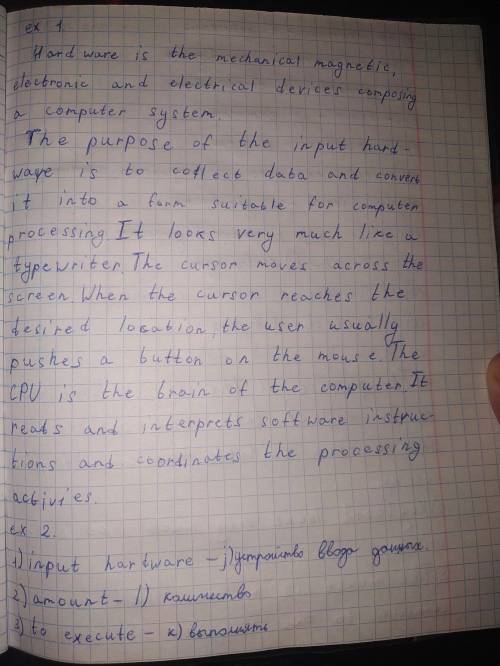 ex 1.
Hardware is the mechanical magnetic,
electronic and electrical devices composing
a computer system.
The purpose of the input hard-
ware is to collect data and convert
it into a form suitable for computer
processing. It looks very much like a
typewriter. The cursor moves across the
screen. When the cursor reaches the
desired location, the user usually
pushes a button on the mouse. The
CPU is the brain of the computer. It
reats and interprets software instruc-
tions and coordinates the processing
activies.
ex 2.
1) input hardware - j) устройство ввода данных.
2) amount - l) количество
3) to execute - k) выполнять